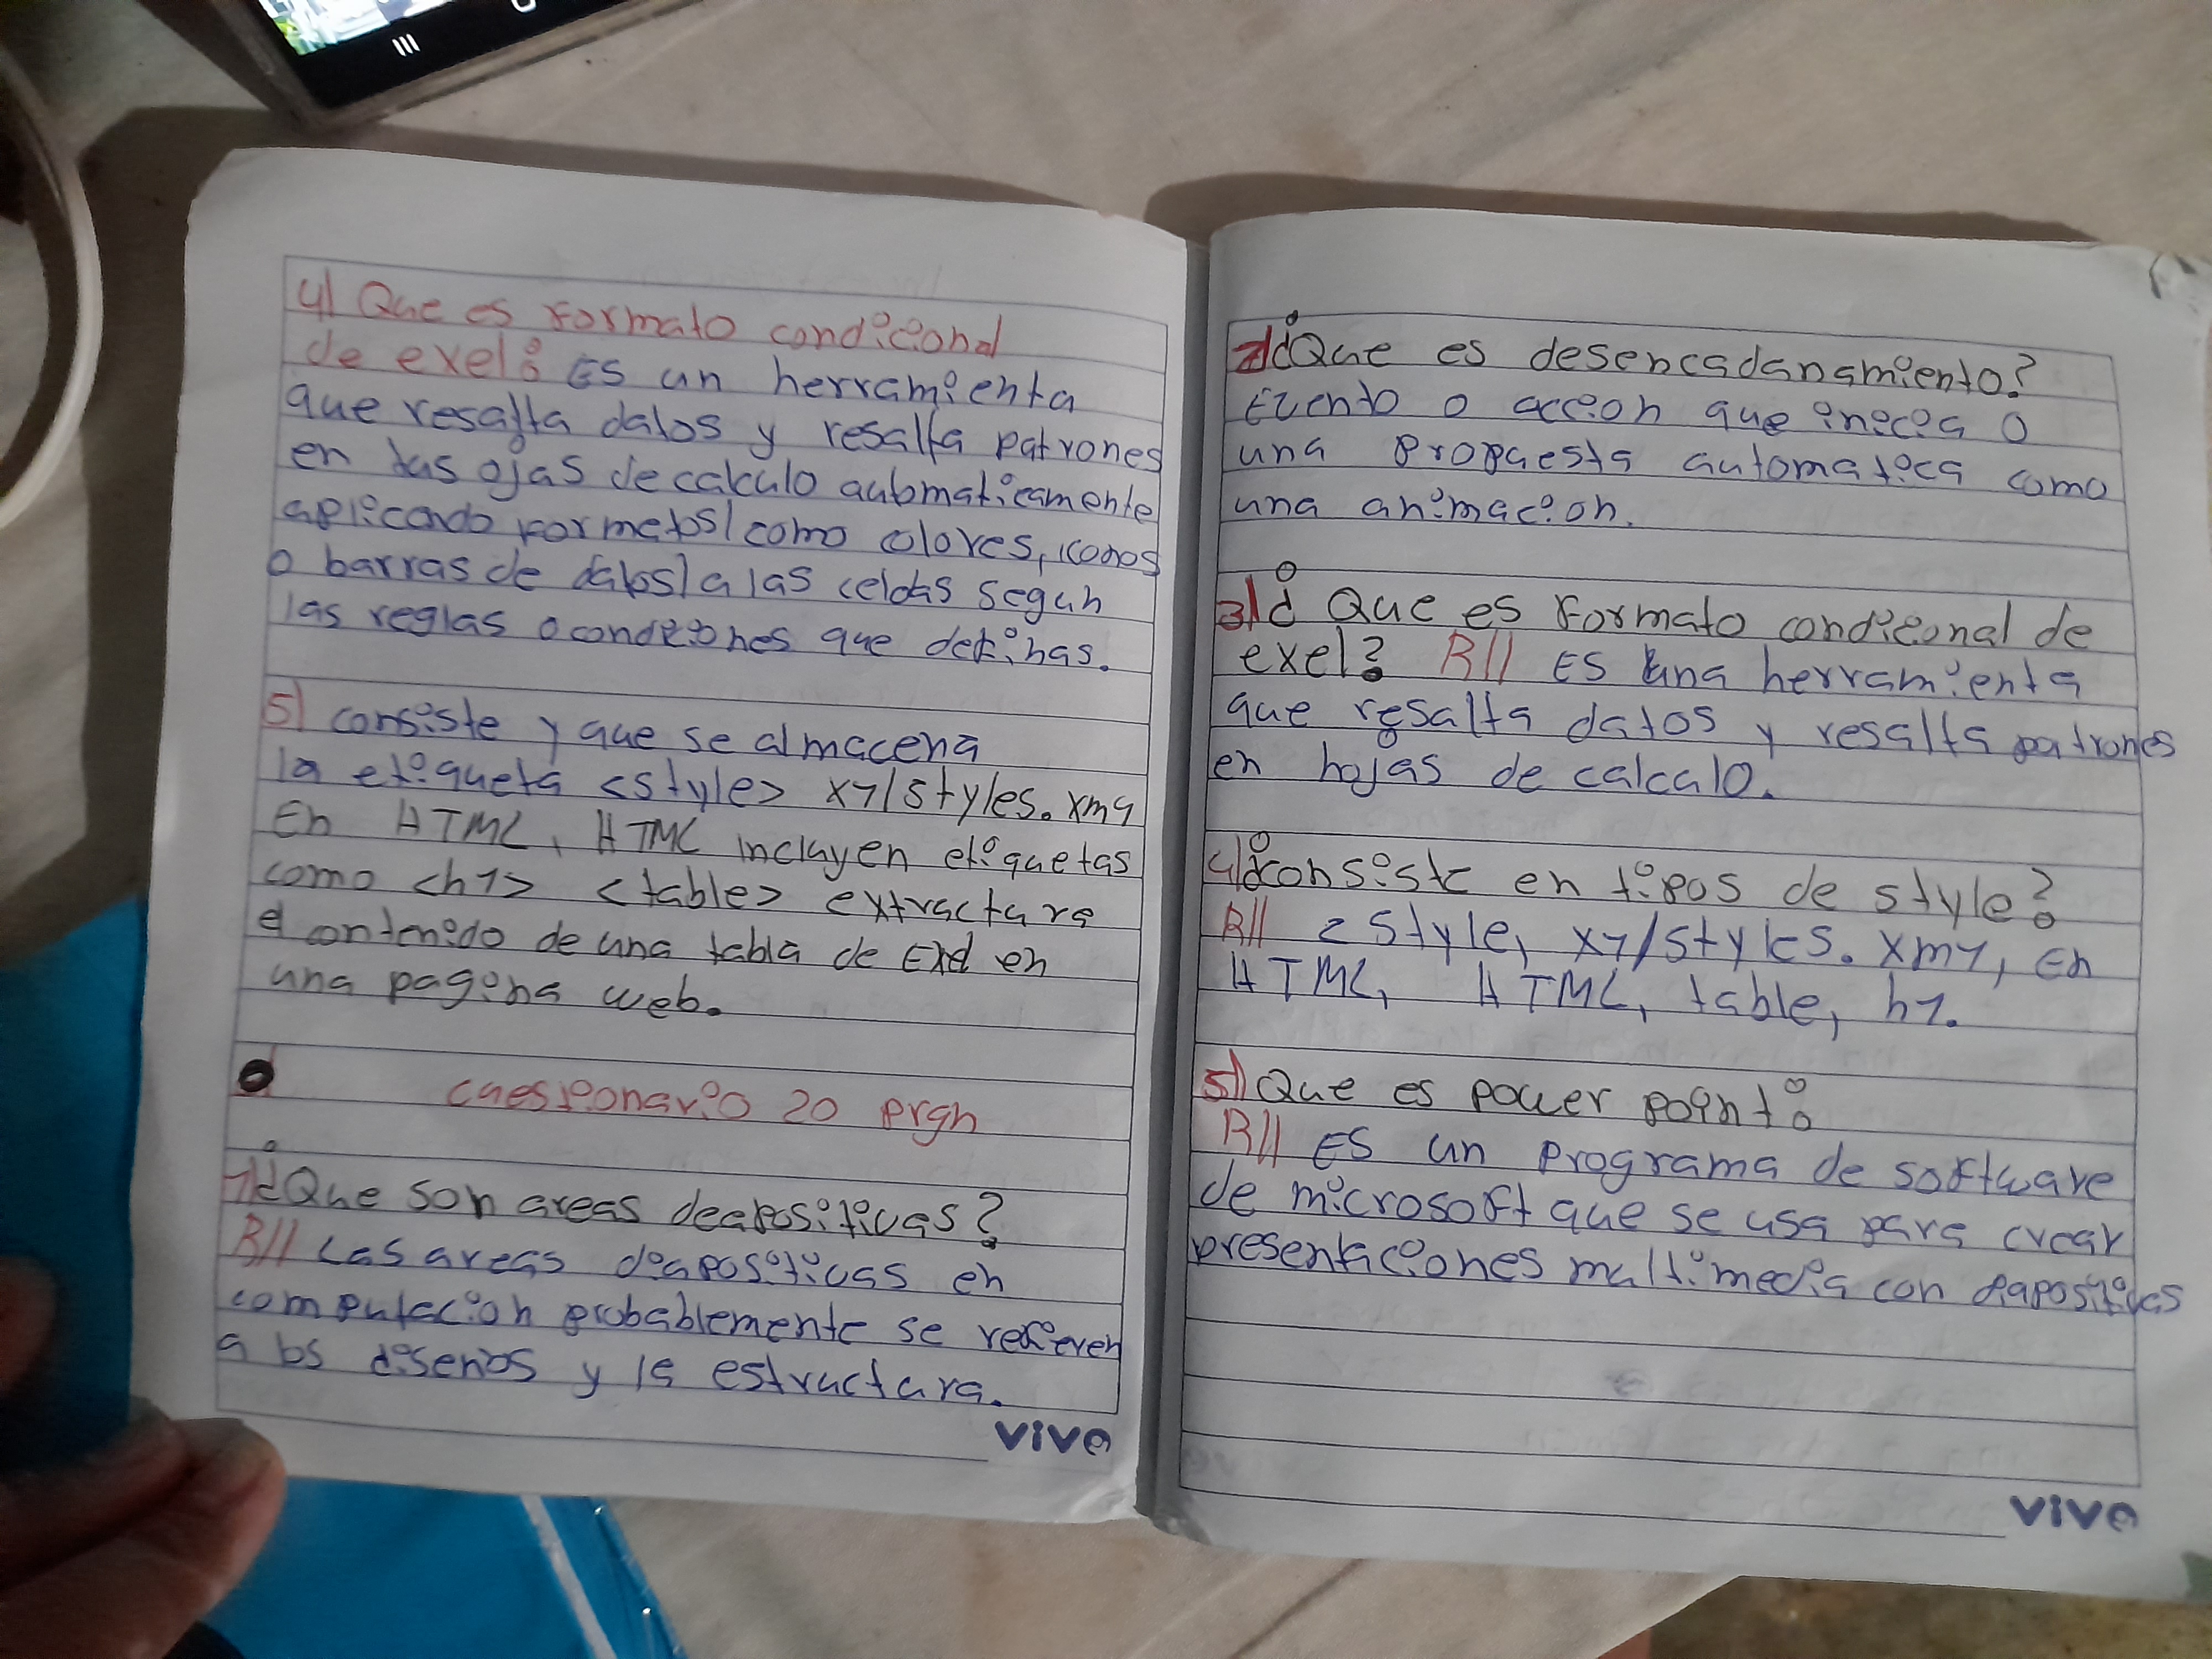 4) Que es Formato condicional
de exel? Es un herramienta
que resalta datos y resalta patrones
en las ojas de calculo automaticamente
aplicando formatos (como colores, iconos
o barras de datos) a las celdas segun
las reglas o condiciones que definas.
5) consiste y que se almacena
la etiqueta <style> x7/styles.xm9
En HTML, HTML incluyen etiquetas
como <h1> <table> extractara
el contenido de una tabla de Exel en
una pagina web.
cuestionario 20 prgn
1) ¿Que son areas deapositivas?
R// Las areas diapositivas en
computacion probablemente se refieren
a los diseños y la estructura.
2) ¿Que es desencadanamiento?
Evento o accion que inicia o
una propuesta automatica como
una animacion.
3) ¿Que es Formato condicional de
exel? R// Es una herramienta
que resalta datos y resalta patrones
en hojas de calculo.
4) ¿consiste en tipos de style?
R// 2 Style, x7/styles.xm7, En
HTML, HTML, table, h1.
5) Que es power point?
R// Es un programa de software
de microsoft que se usa para crear
presentaciones multimedia con diapositivas
viva
viva